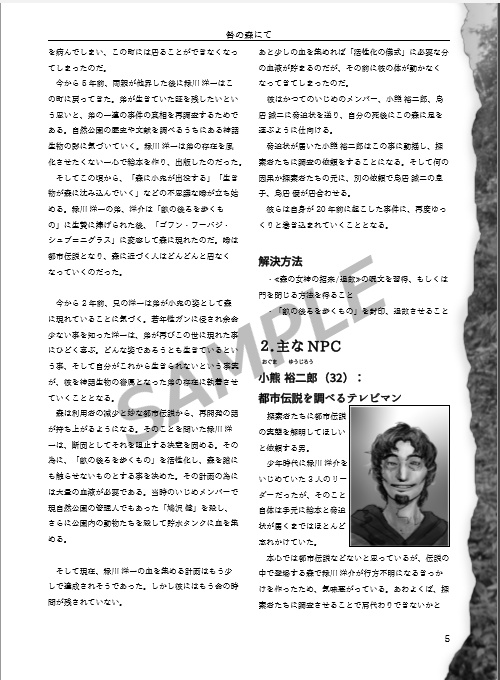 咎の森にて
を病んでしまい、この町には居ることができなくなっ
てしまったのだ。
今から５年前、両親が他界した後に緑川 洋一はこ
の町に戻ってきた。弟が生きていた証を残したいとい
う思いと、弟の一連の事件の真相を再調査するためで
ある。自然公園の歴史や文献を調べるうちにある神話
生物の影に気づいていく。緑川 洋一は弟の存在を風
化させたくない一心で絵本を作り、出版したのだった。
そしてこの頃から、「森には小鬼が出没する」「生き
物が森に沈み込んでいく」などの不思議な噂が立ち始
める。緑川 洋一の弟、洋介は「獣の後ろを歩くも
の」に生贄に捧げられた後、「ゴフン・フーパジ・
シュブ＝ニグラス」に変容して森に現れたのだ。噂は
都市伝説となり、森に近づく人はどんどんと居なく
なっていくのだった。
今から２年前、兄の洋一は弟が小鬼の姿として森
に現れていることに気づく。若年性ガンに侵され余命
少ない事を知った洋一は、弟が再びこの世に現れた事
にひどく喜ぶ。どんな姿であろうとも生きているとい
う事、そして自分がこれから生きられないという事実
が、彼を神話生物の眷属となった弟の存在に執着させ
ていくこととなる。
森は利用者の減少と妙な都市伝説から、再開発の話
が持ち上がるようになる。そのことを聞いた緑川 洋
一は、断固としてそれを阻止する決意を固める。その
為に、「獣の後ろを歩くもの」を活性化し、森を誰に
も触らせないものとする事を決めた。その計画の為に
は大量の血液が必要である。当時のいじめメンバーで
現自然公園の管理人でもあった「鳩沢 健」を殺し、
さらに公園内の動物たちを殺して貯水タンクに血を集
める。
そして現在、緑川 洋一の血を集める計画はもう少
しで達成されそうであった。しかし彼にはもう命の時
間が残されていない。
あと少しの血を集めれば「活性化の儀式」に必要な分
の血液が貯まるのだが、その前に彼の体が動かなく
なってきてしまったのだ。
彼はかつてのいじめのメンバー、小熊 裕二郎、鳥
居 誠二に脅迫状を送り、自分の死後にこの森に足を
運ぶように仕向ける。
脅迫状が届いた小熊 裕二郎はこの事に動揺し、探
索者たちに調査の依頼をすることになる。そして何の
因果か探索者たちの元に、別の依頼で鳥居 誠二の息
子、鳥居 俊が居合わせる。
彼らは自身が 20 年前に起こした事件に、再度ゆっ
くりと巻き込まれていくこととなる。
解決方法
・≪森の女神の招来/退散≫の呪文を習得、もしくは
門を閉じる方法を得ること
・「獣の後ろを歩くもの」を封印、退散させること
2.主な NPC
おぐま ゆうじろう
小熊 裕二郎（32）：
都市伝説を調べるテレビマン
探索者たちに都市伝説
の実態を解明してほしい
と依頼する男。
少年時代に緑川 洋介を
いじめていた３人のリー
ダーだったが、そのこと
自体は手元に絵本と脅迫
状が届くまではほとんど
忘れかけていた。
本心では都市伝説などないと思っているが、伝説の
中で登場する森で緑川 洋介が行方不明になるきっか
けを作ったため、気味悪がっている。あわよくば、探
索者たちに調査させることで肩代わりできないかと
SAMPLE
5